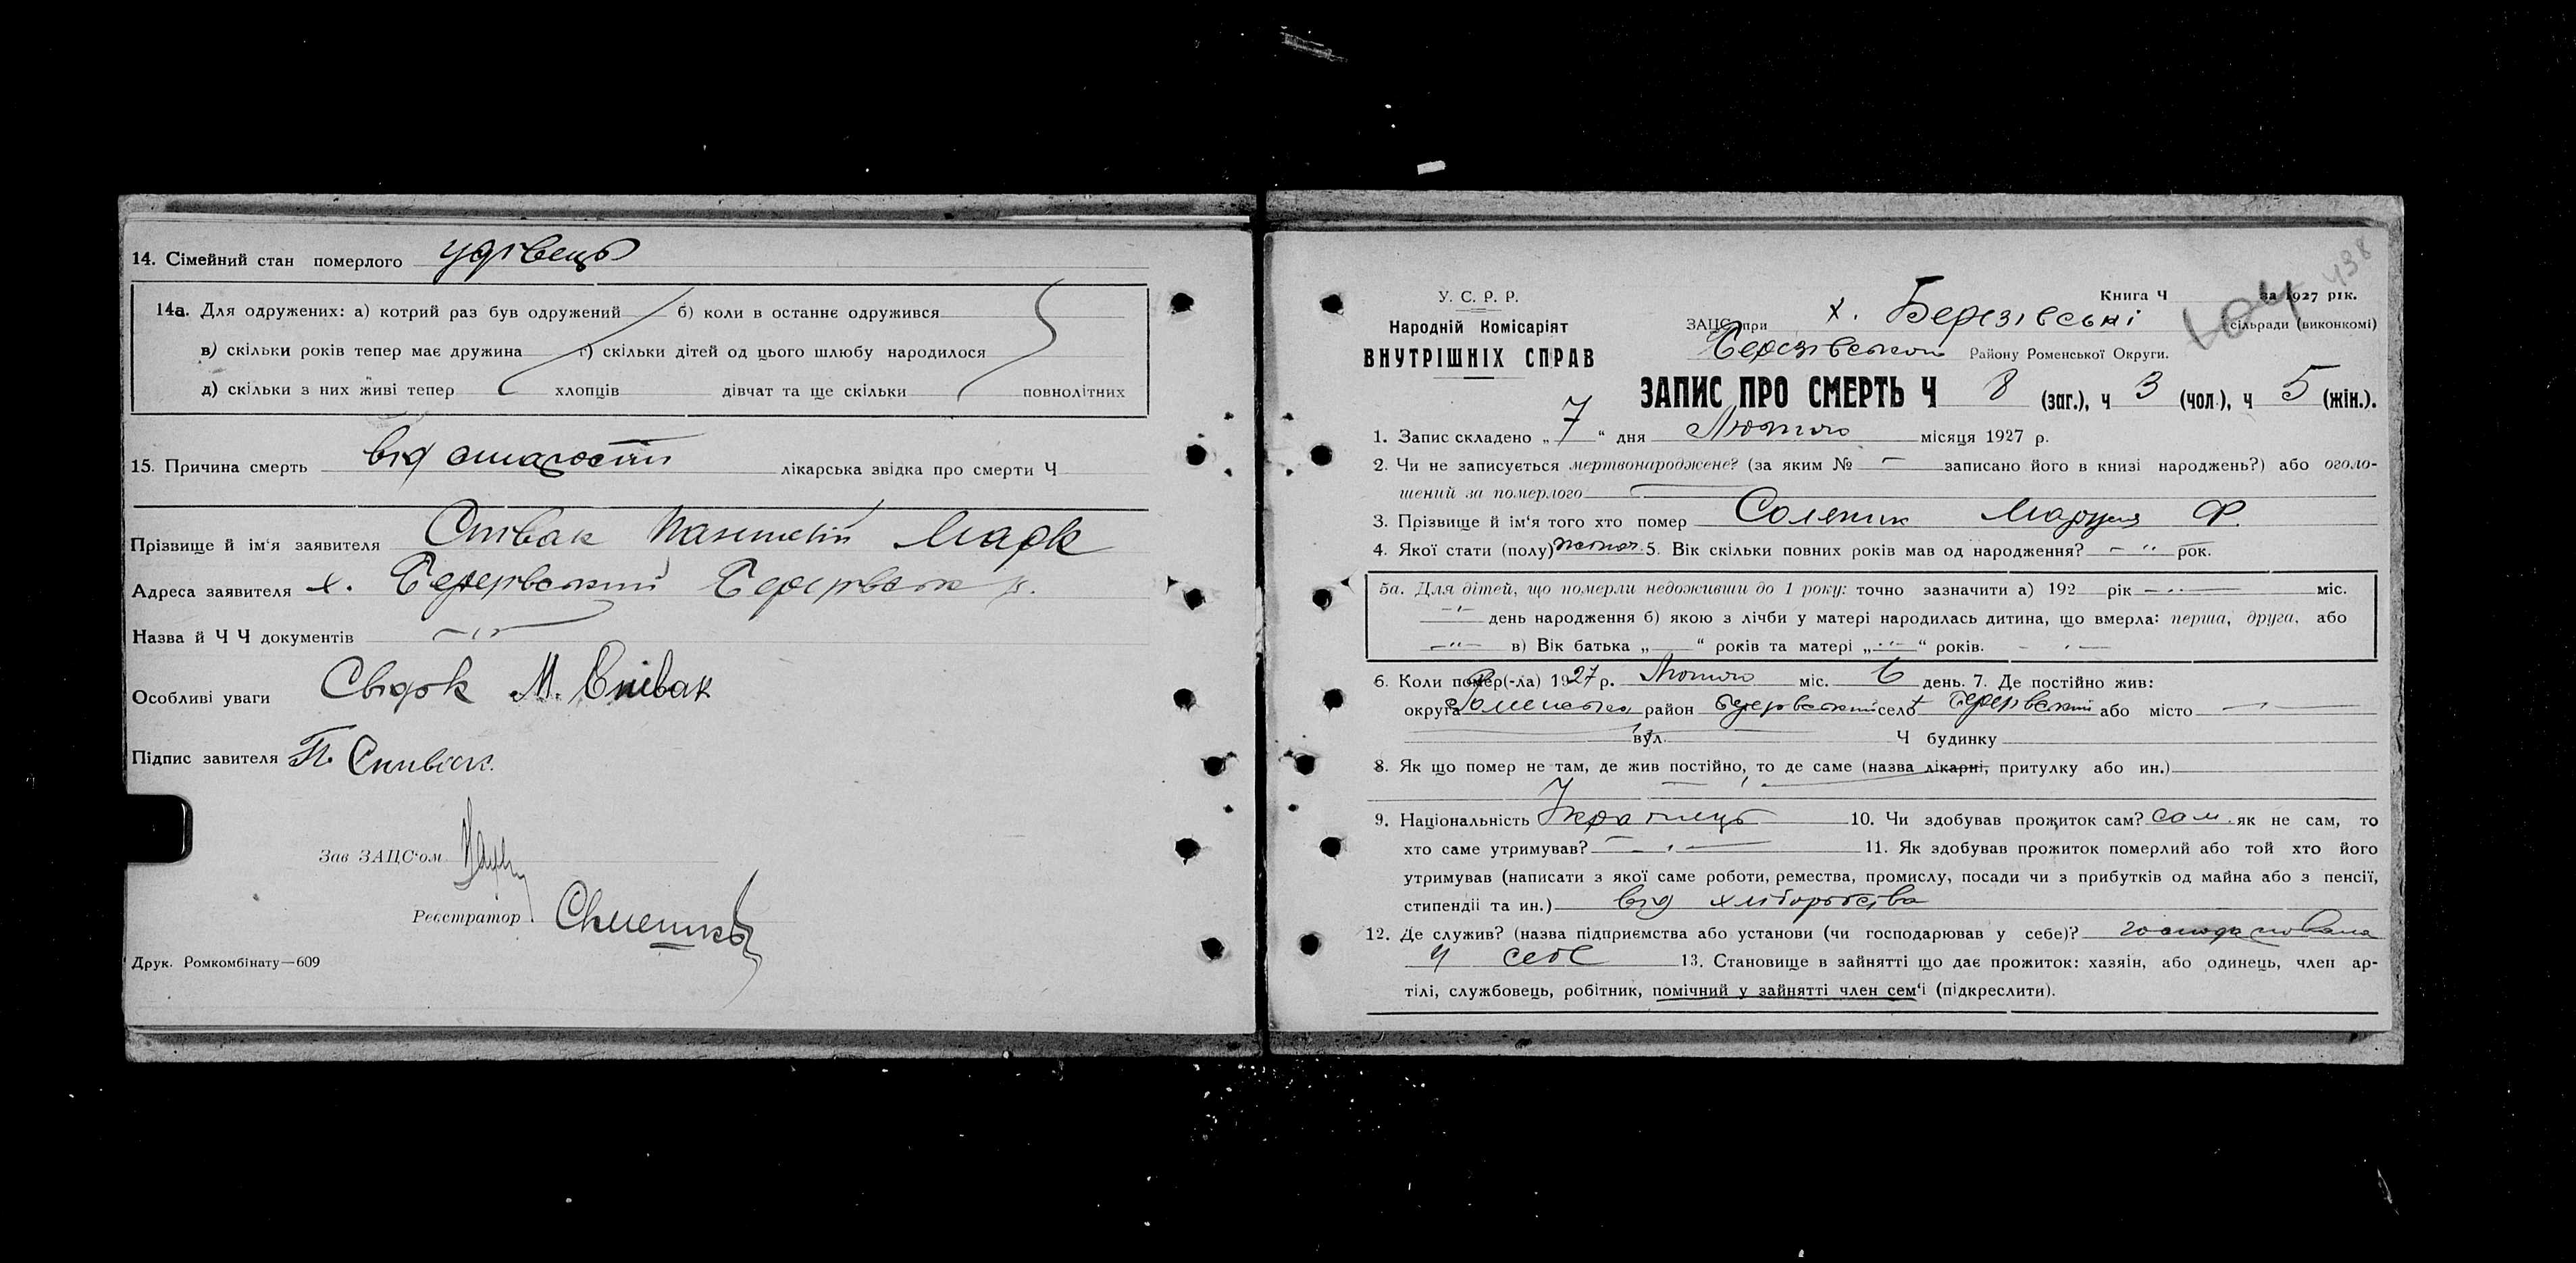 14. Сімейний стан померлого удівець
14а. Для одружених: а) котрий раз був одружений б) коли в останнє одружився
в) скільки років тепер має дружина г) скільки дітей од цього шлюбу народилося
д) скільки з них живі тепер хлопців дівчат та ще скільки повнолітних
15. Причина смерть від старости лікарська звідка про смерти Ч
Прізвище й ім'я заявителя Співак Пантелій Марк
Адреса заявителя х.
Назва й Ч Ч документів — " —
Особливі уваги Свідок М. Співак
Підпис завителя П. Спивак.
Зав ЗАЦС'ом
Реєстратор
Друк. Ромкомбінату—609
438
У. С. Р. Р.
Книга Ч за 1927 рік.
Народній Комісаріят
ЗАЦС при х. Березівські сільради (виконкомі)
ВНУТРІШНІХ СПРАВ
Району Роменської Округи.
ЗАПИС ПРО СМЕРТЬ Ч 8 (заг.), ч 3 (чол.), ч 5 (жін.).
1. Запис складено „ 7 “ дня Лютого місяця 1927 р.
2. Чи не записується мертвонароджене? (за яким № — записано його в книзі народжень?) або оголо-
шений за померлого —
3. Прізвище й ім'я того хто помер Соляник Маруся Ф.
4. Якої стати (полу) жіноч. 5. Вік скільки повних років мав од народження? — " — рок.
5а. Для дітей, що померли недоживши до 1 року: точно зазначити а) 192 рік — " — міс.
— " — день народження б) якою з лічби у матері народилась дитина, що вмерла: перша, друга, або
— " — в) Вік батька „ “ років та матері „ — " — “ років. — " —
6. Коли помер(-ла) 1927 р. Лютого міс. 6 день. 7. Де постійно жив:
округа Роменська район село або місто — " —
вул. Ч будинку
8. Як що помер не там, де жив постійно, то де саме (назва лікарні, притулку або ин.)
9. Національність Українець 10. Чи здобував прожиток сам? сам. як не сам, то
хто саме утримував? — " — 11. Як здобував прожиток померлий або той хто його
утримував (написати з якої саме роботи, ремества, промислу, посади чи з прибутків од майна або з пенсії,
стипендіі та ин.) від хліборобства
12. Де служив? (назва підприємства або установи (чи господарював у себе)? господарювала
у себе 13. Становище в зайнятті що дає прожиток: хазяін, або одинець, член ар-
тілі, службовець, робітник, помічний у зайнятті член сем'і (підкреслити).